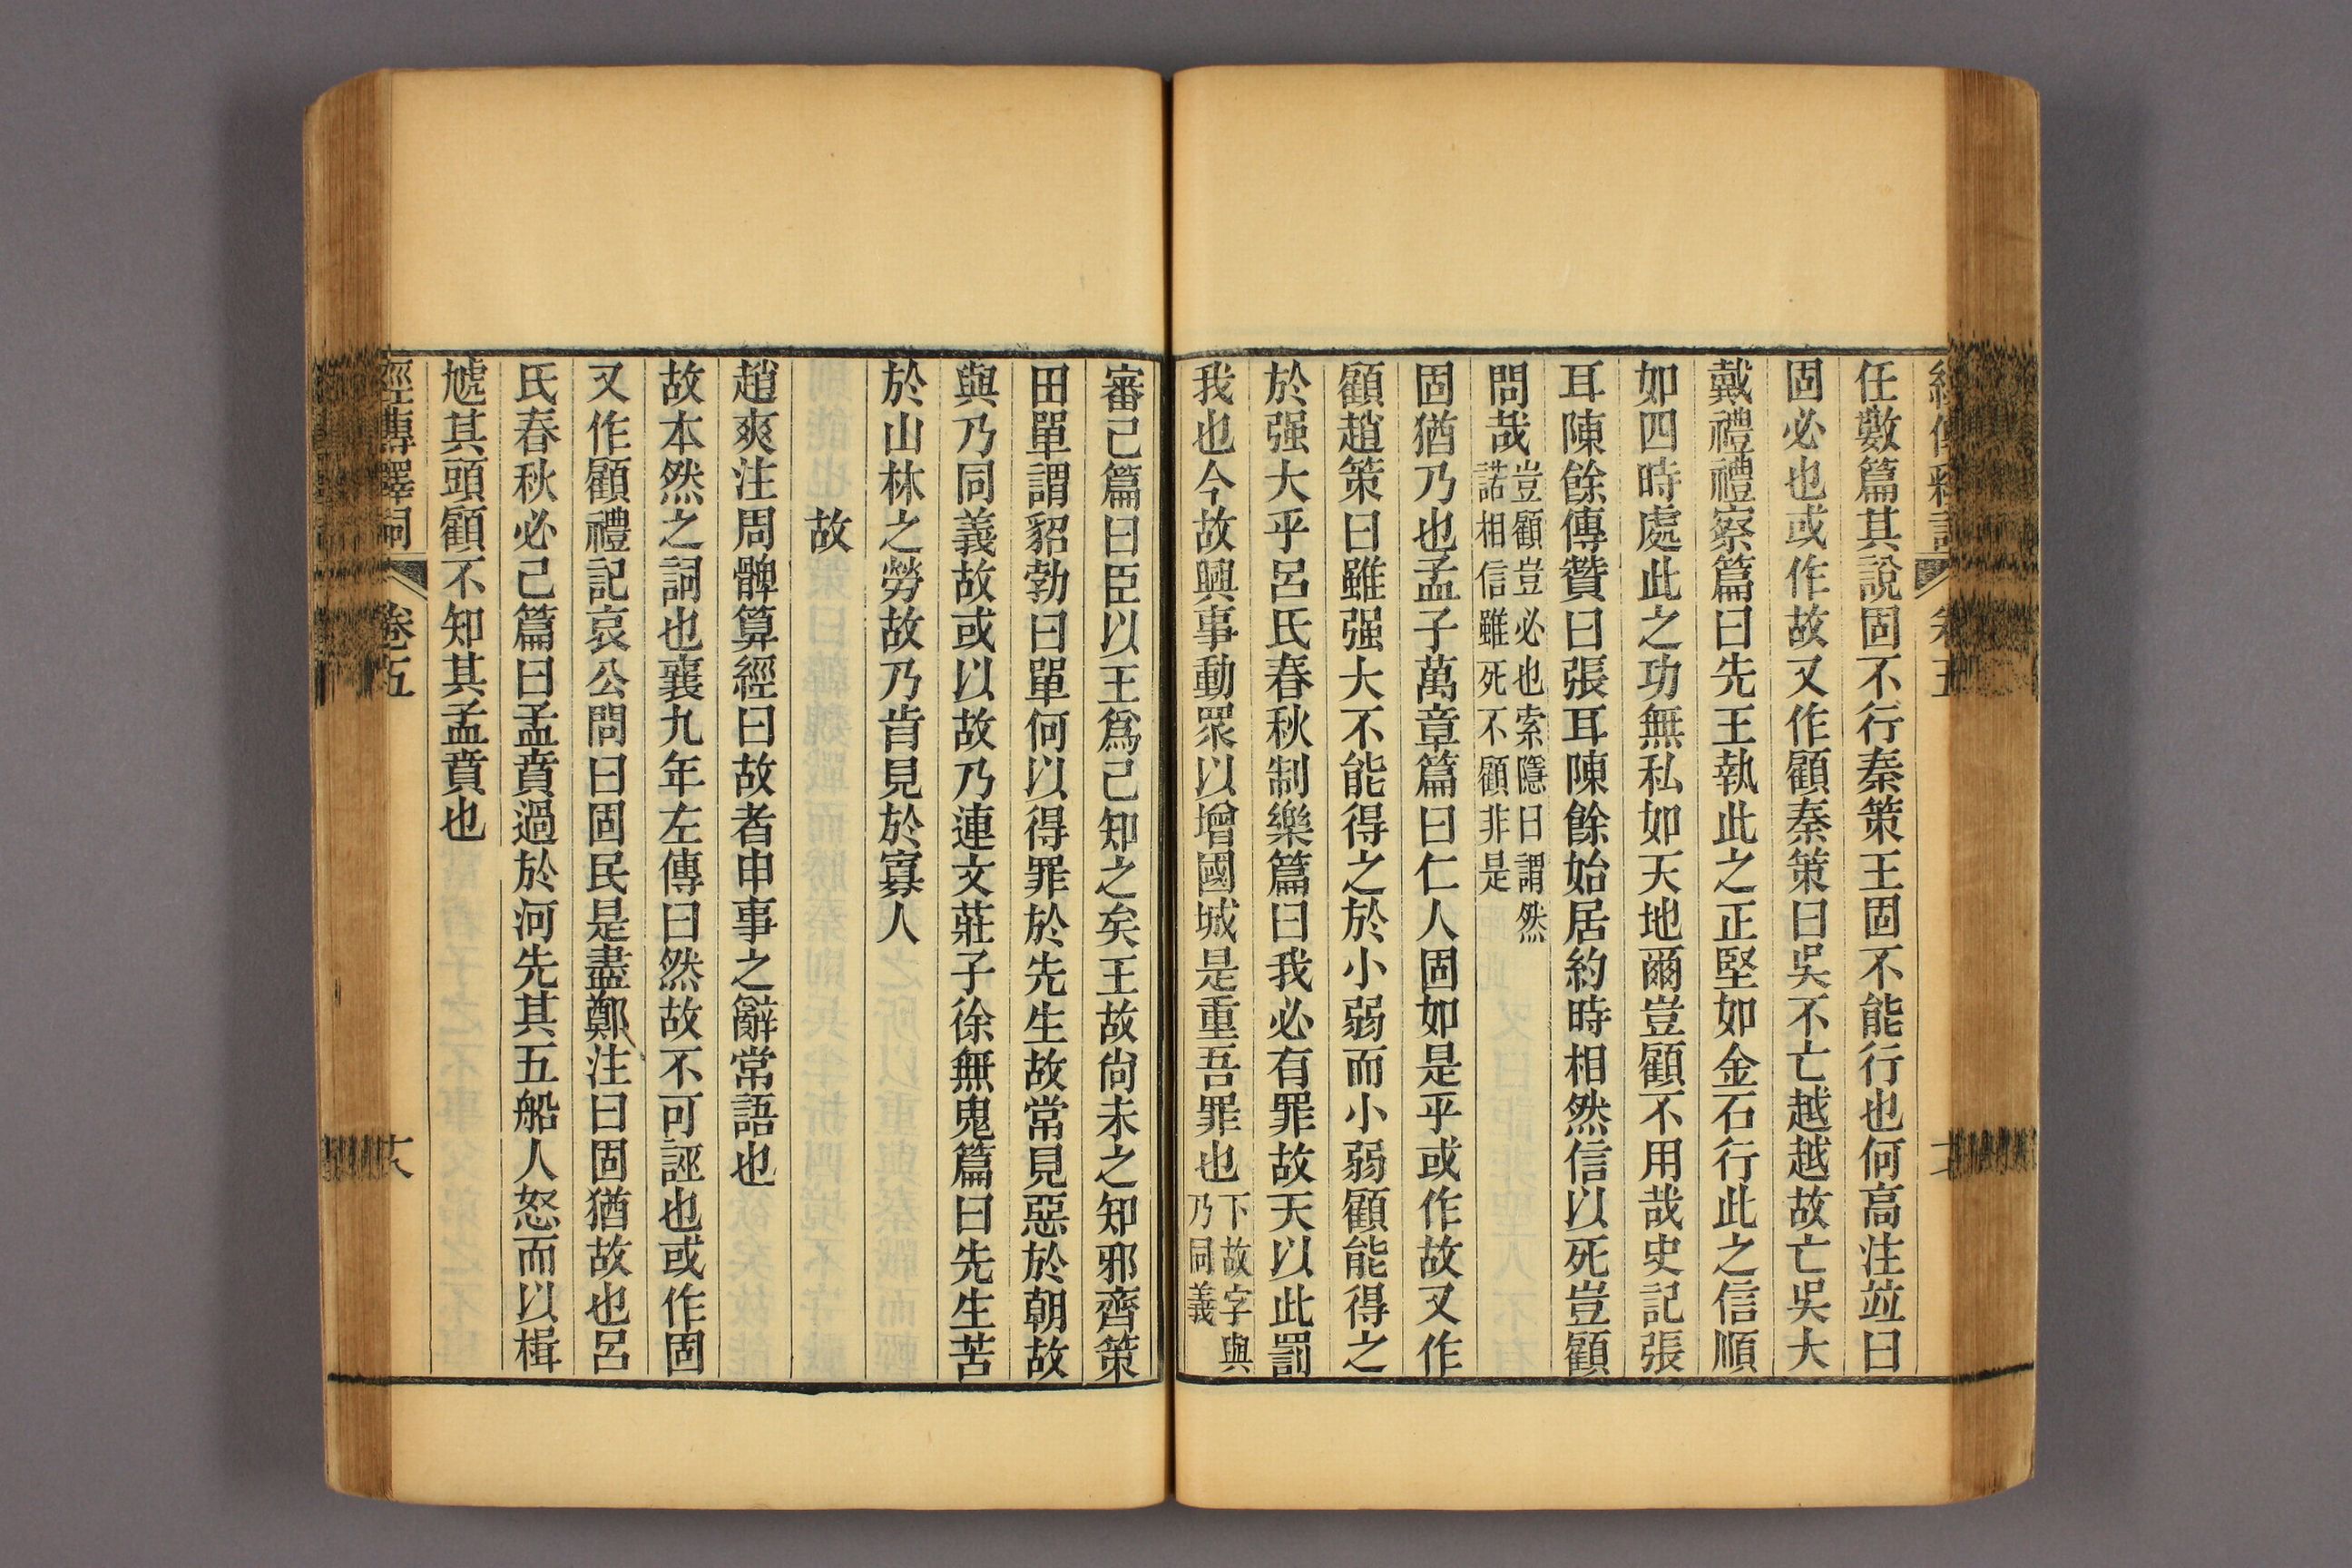 任數篇其說固不行秦策王固不能行也何高注竝曰
固必也或作故又作顧秦策曰吳不亡越越故亡吳大
戴禮禮察篇曰先王執此之正堅如金石行此之信順
如四時處此之功無私如天地爾豈顧不用哉史記張
耳陳餘傳贊曰張耳陳餘始居約時相然信以死豈顧
問哉
豈顧豈必也索隱曰謂然
諾相信雖死不顧非是
固猶乃也孟子萬章篇曰仁人固如是乎或作故又作
顧趙策曰雖强大不能得之於小弱而小弱顧能得之
於强大乎呂氏春秋制樂篇曰我必有罪故天以此罰
我也今故興事動眾以增國城是重吾罪也
下故字與
乃同義
審己篇曰臣以王爲己知之矣王故尙未之知邪齊策
田單謂貂勃曰單何以得罪於先生故常見惡於朝故
與乃同義故或以故乃連文莊子徐無鬼篇曰先生苦
於山林之勞故乃肯見於寡人
故
趙爽注周髀算經曰故者申事之辭常語也
故本然之詞也襄九年左傳曰然故不可誣也或作固
又作顧禮記哀公問曰固民是盡鄭注曰固猶故也呂
氏春秋必己篇曰孟賁過於河先其五船人怒而以楫
虓其頭顧不知其孟賁也
經傳釋詞
卷五